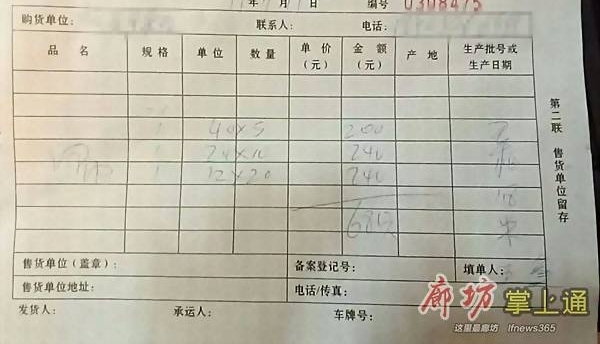 年 月 日 编号 0308475
购货单位： 联系人： 电话：
品名 规格 单位 数量 单价（元） 金额（元） 产地 生产批号或生产日期
1 40×5 200
1 24×10 240
1 12×20 240
680
第二联 售货单位留存
售货单位（盖章）： 备案登记号： 填单人：
售货单位地址： 电话/传真：
发货人： 承运人： 车牌号：
廊坊掌上通
这里最廊坊 lfnews365